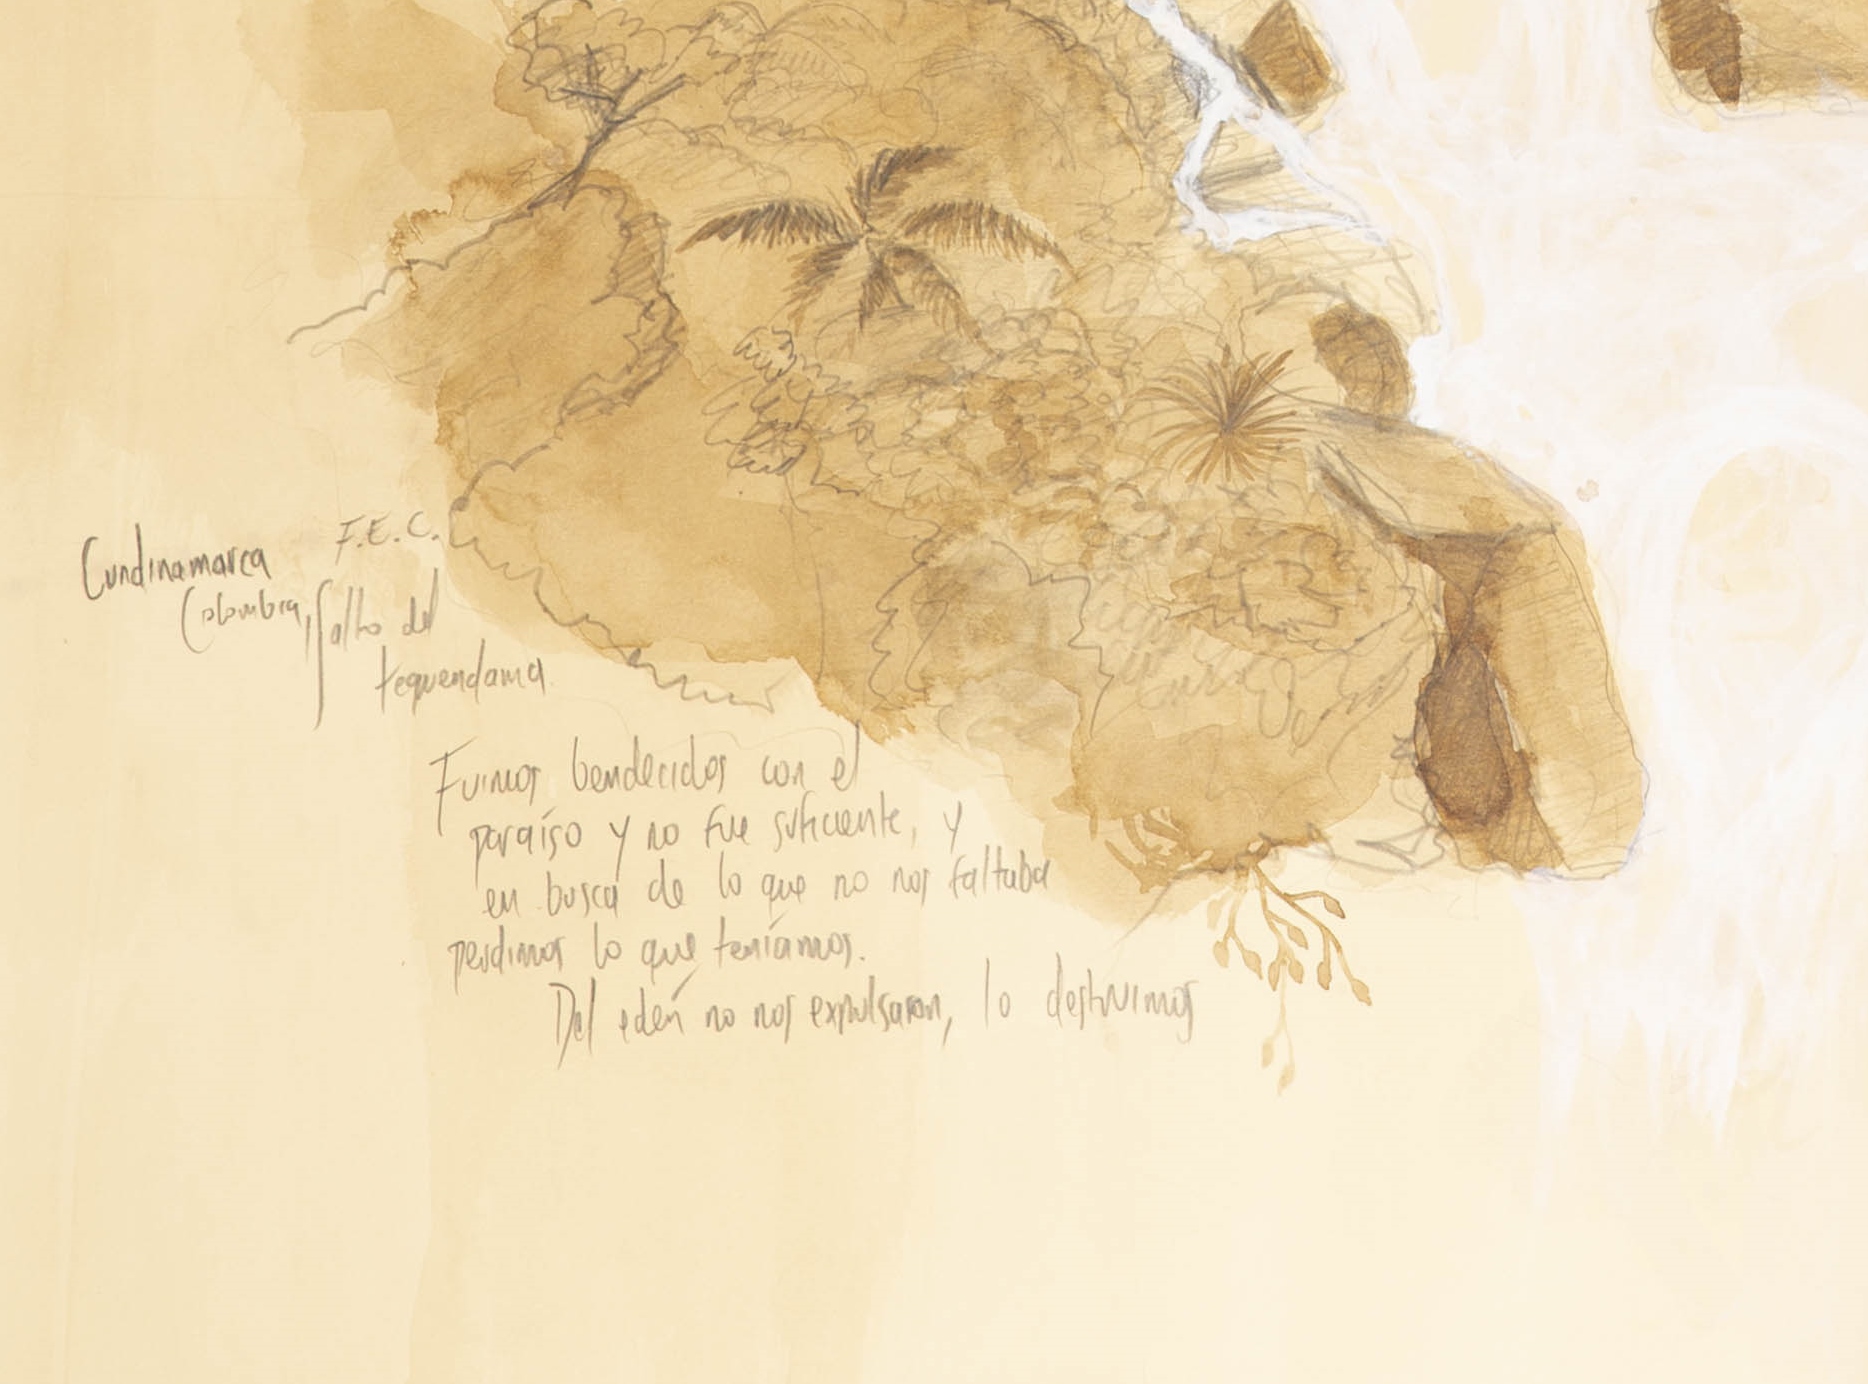 F.E.C.
Cundinamarca
Colombia, Salto del
tequendama.
Fuimos bendecidos con el
paraíso y no fue suficiente, y
en busca de lo que no nos faltaba
perdimos lo que teníamos.
Del edén no nos expulsaron, lo destruimos